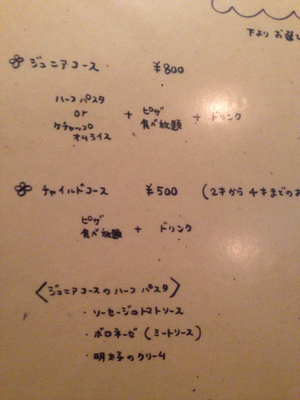 下より お選び
ジュニアコース ¥800
ハーフ パスタ
or + ピザ 食べ放題 + ドリンク
ケチャップ
オムライス
チャイルドコース ¥500 (2才から4才までのお
ピザ
食べ放題 + ドリンク
〈ジュニアコースのハーフ パスタ〉
・ソーセージのトマトソース
・ボロネーゼ (ミートソース)
・明太子のクリーム